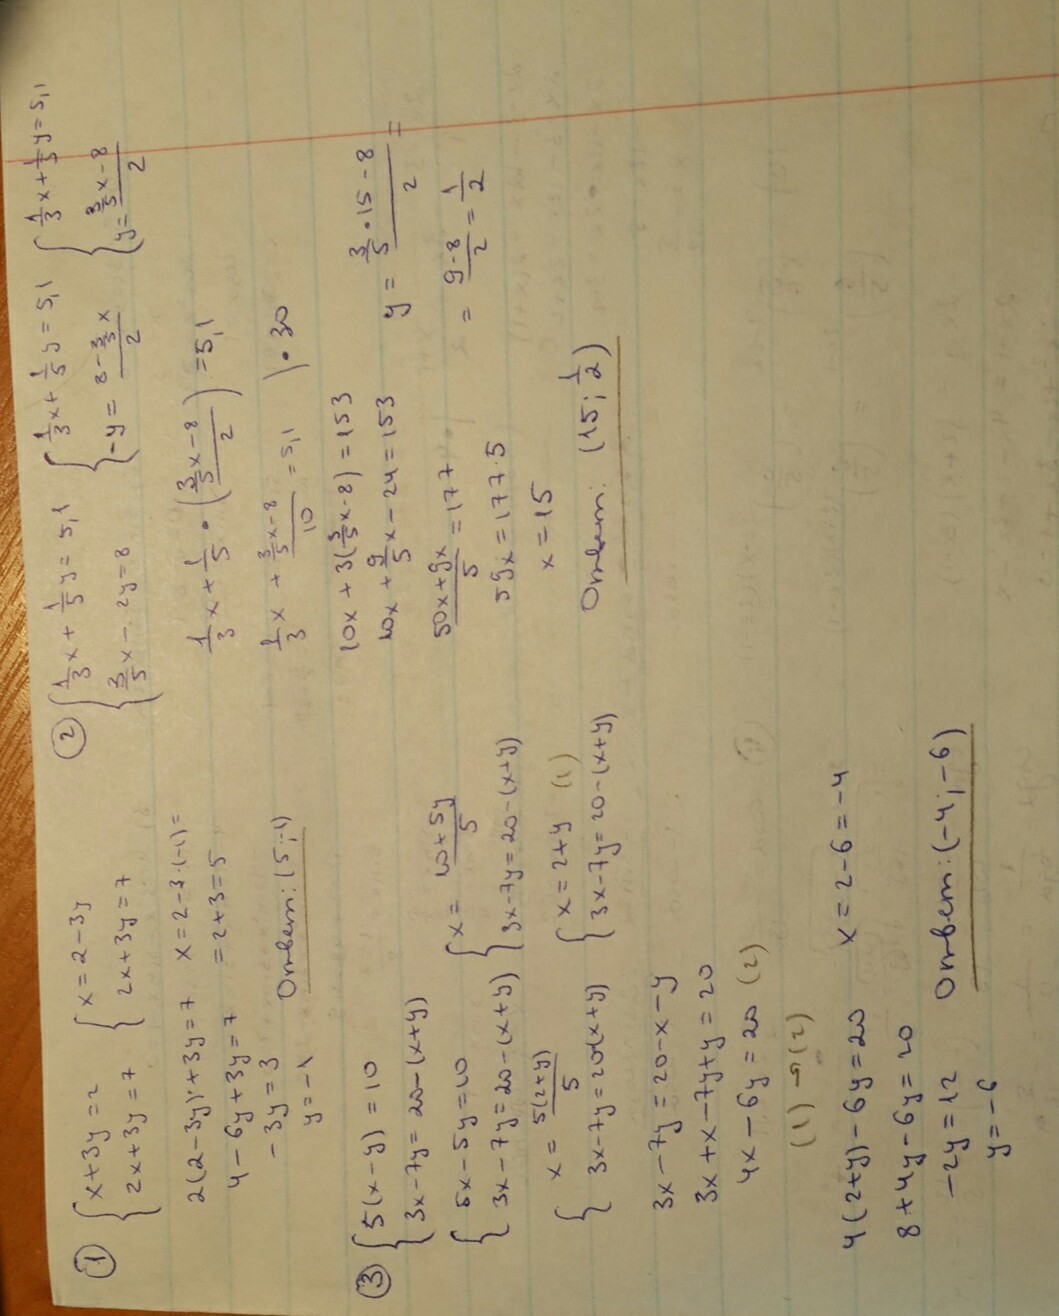 ① { x+3y=2   { x=2-3y
{ 2x+3y=7   { 2x+3y=7
2(2-3y)+3y=7   x=2-3·(-1)=
4-6y+3y=7   =2+3=5
-3y=3
y=-1   Ответ: (5;-1)
② { 1/3x+1/5y=5,1   { 1/3x+1/5y=5,1   { 1/3x+1/5y=5,1
{ 3/5x-2y=8   { -y=(8-3/5x)/2   { y=(3/5x-8)/2
1/3x+1/5·((3/5x-8)/2)=5,1
1/3x+(3/5x-8)/10=5,1 |·30
10x+3(3/5x-8)=153   y=(3/5·15-8)/2=
10x+9/5x-24=153
(50x+9x)/5=177   =(9-8)/2=1/2
59x=177·5
x=15
Ответ: (15; 1/2)
③ { 5(x-y)=10
{ 3x-7y=20-(x+y)
{ 5x-5y=10   { x=(10+5y)/5
{ 3x-7y=20-(x+y)   { 3x-7y=20-(x+y)
{ x=5(2+y)/5   { x=2+y (1)
{ 3x-7y=20(x+y)   { 3x-7y=20-(x+y)
3x-7y=20-x-y
3x+x-7y+y=20
4x-6y=20 (2)
(1)→(2)
4(2+y)-6y=20   x=2-6=-4
8+4y-6y=20
-2y=12   Ответ: (-4;-6)
y=-6